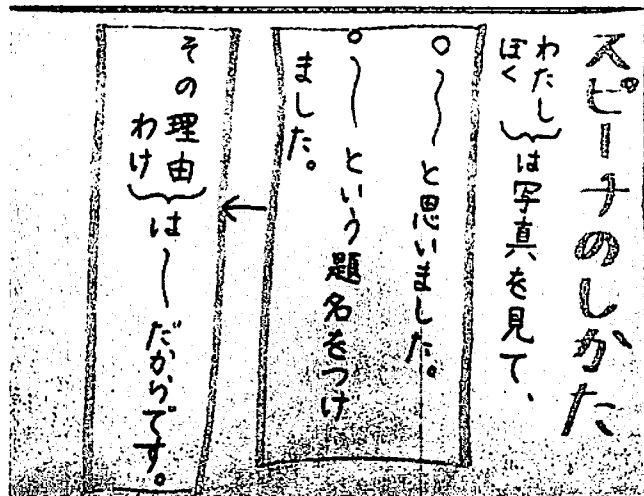 スピーチのしかた
わたし
ぼく
は写真を見て、
○〜と思いました。
○〜という題名をつけ
ました。
その理由
わけ
は〜だからです。